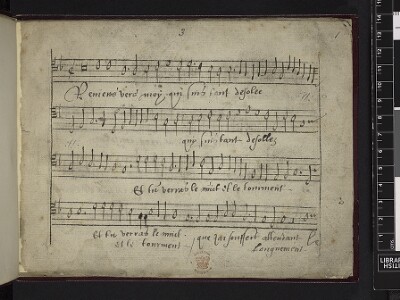 3
Reviens vers moy qui suis tant desolee
qui suis tant desollee
Et tu verras le mal et le tourment
Et tu verras le mal
et le tourment
que j'ai souffert attendant
longuement